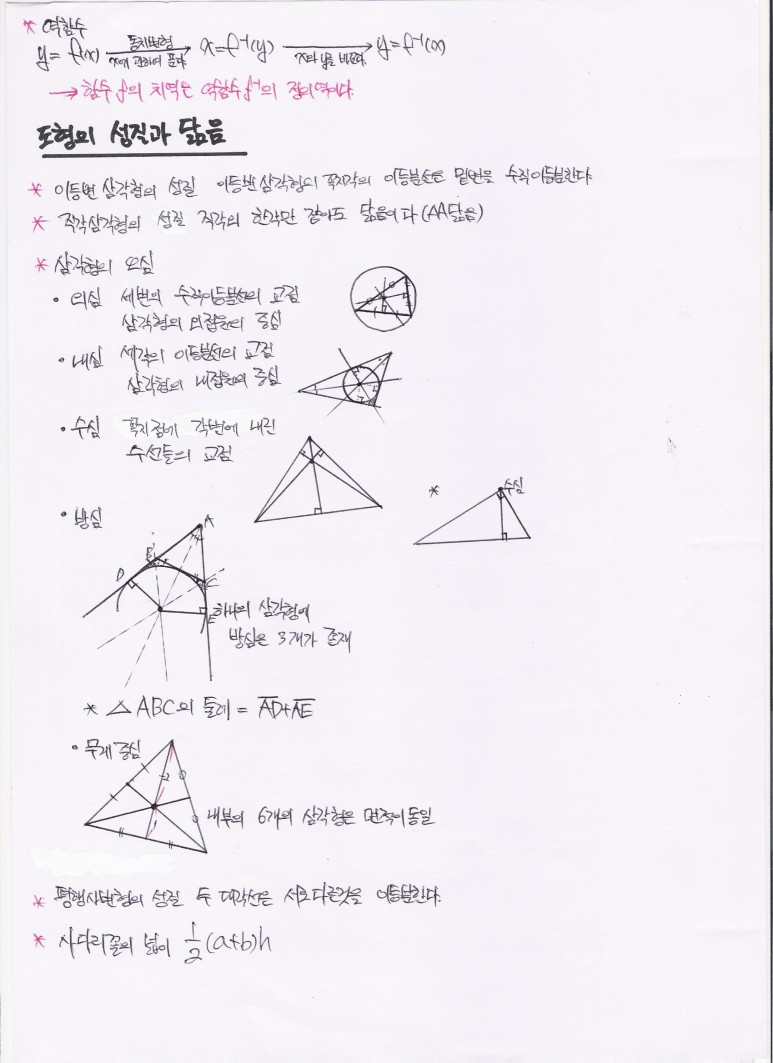 * 역함수
y = f(x) 동치변형 x에 관하여 푼다 x = f⁻¹(y) x와 y를 바꾼다. y = f⁻¹(x)
→ 함수 f의 치역은 역함수 f⁻¹의 정의역이다.
도형의 성질과 닮음
* 이등변 삼각형의 성질 이등변 삼각형의 꼭지각의 이등분선은 밑변을 수직이등분한다.
* 직각삼각형의 성질 직각의 한각만 같아도 닮음이다 (AA닮음)
* 삼각형의 오심
• 외심 세변의 수직이등분선의 교점
삼각형의 외접원의 중심
• 내심 세각의 이등분선의 교점
삼각형의 내접원의 중심
• 수심 꼭지점에 각변에 내린
수선들의 교점
* 수심
• 방심
A
B
D
C
E
하나의 삼각형에
방심은 3개가 존재
* △ABC의 둘레 = A̅D̅+A̅E̅
• 무게중심
2
1
내부의 6개의 삼각형은 면적이 동일
* 평행사변형의 성질 두 대각선은 서로 다른것을 이등분한다.
* 사다리꼴의 넓이 1/2 (a+b)h